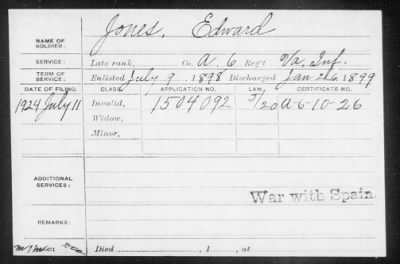 Jones, Edward
NAME OF SOLDIER:
SERVICE: Late rank, Co. A, 6 Reg't Va. Inf.
TERM OF SERVICE: Enlisted July 9 1898 Discharged Jan 26, 1899
DATE OF FILING. CLASS. APPLICATION NO. LAW. CERTIFICATE NO.
1924 July 11 Invalid, 1504092 5/20 A-6-10-26
Widow,
Minor,
ADDITIONAL SERVICES:
War with Spain.
REMARKS:
Died , 1 , at